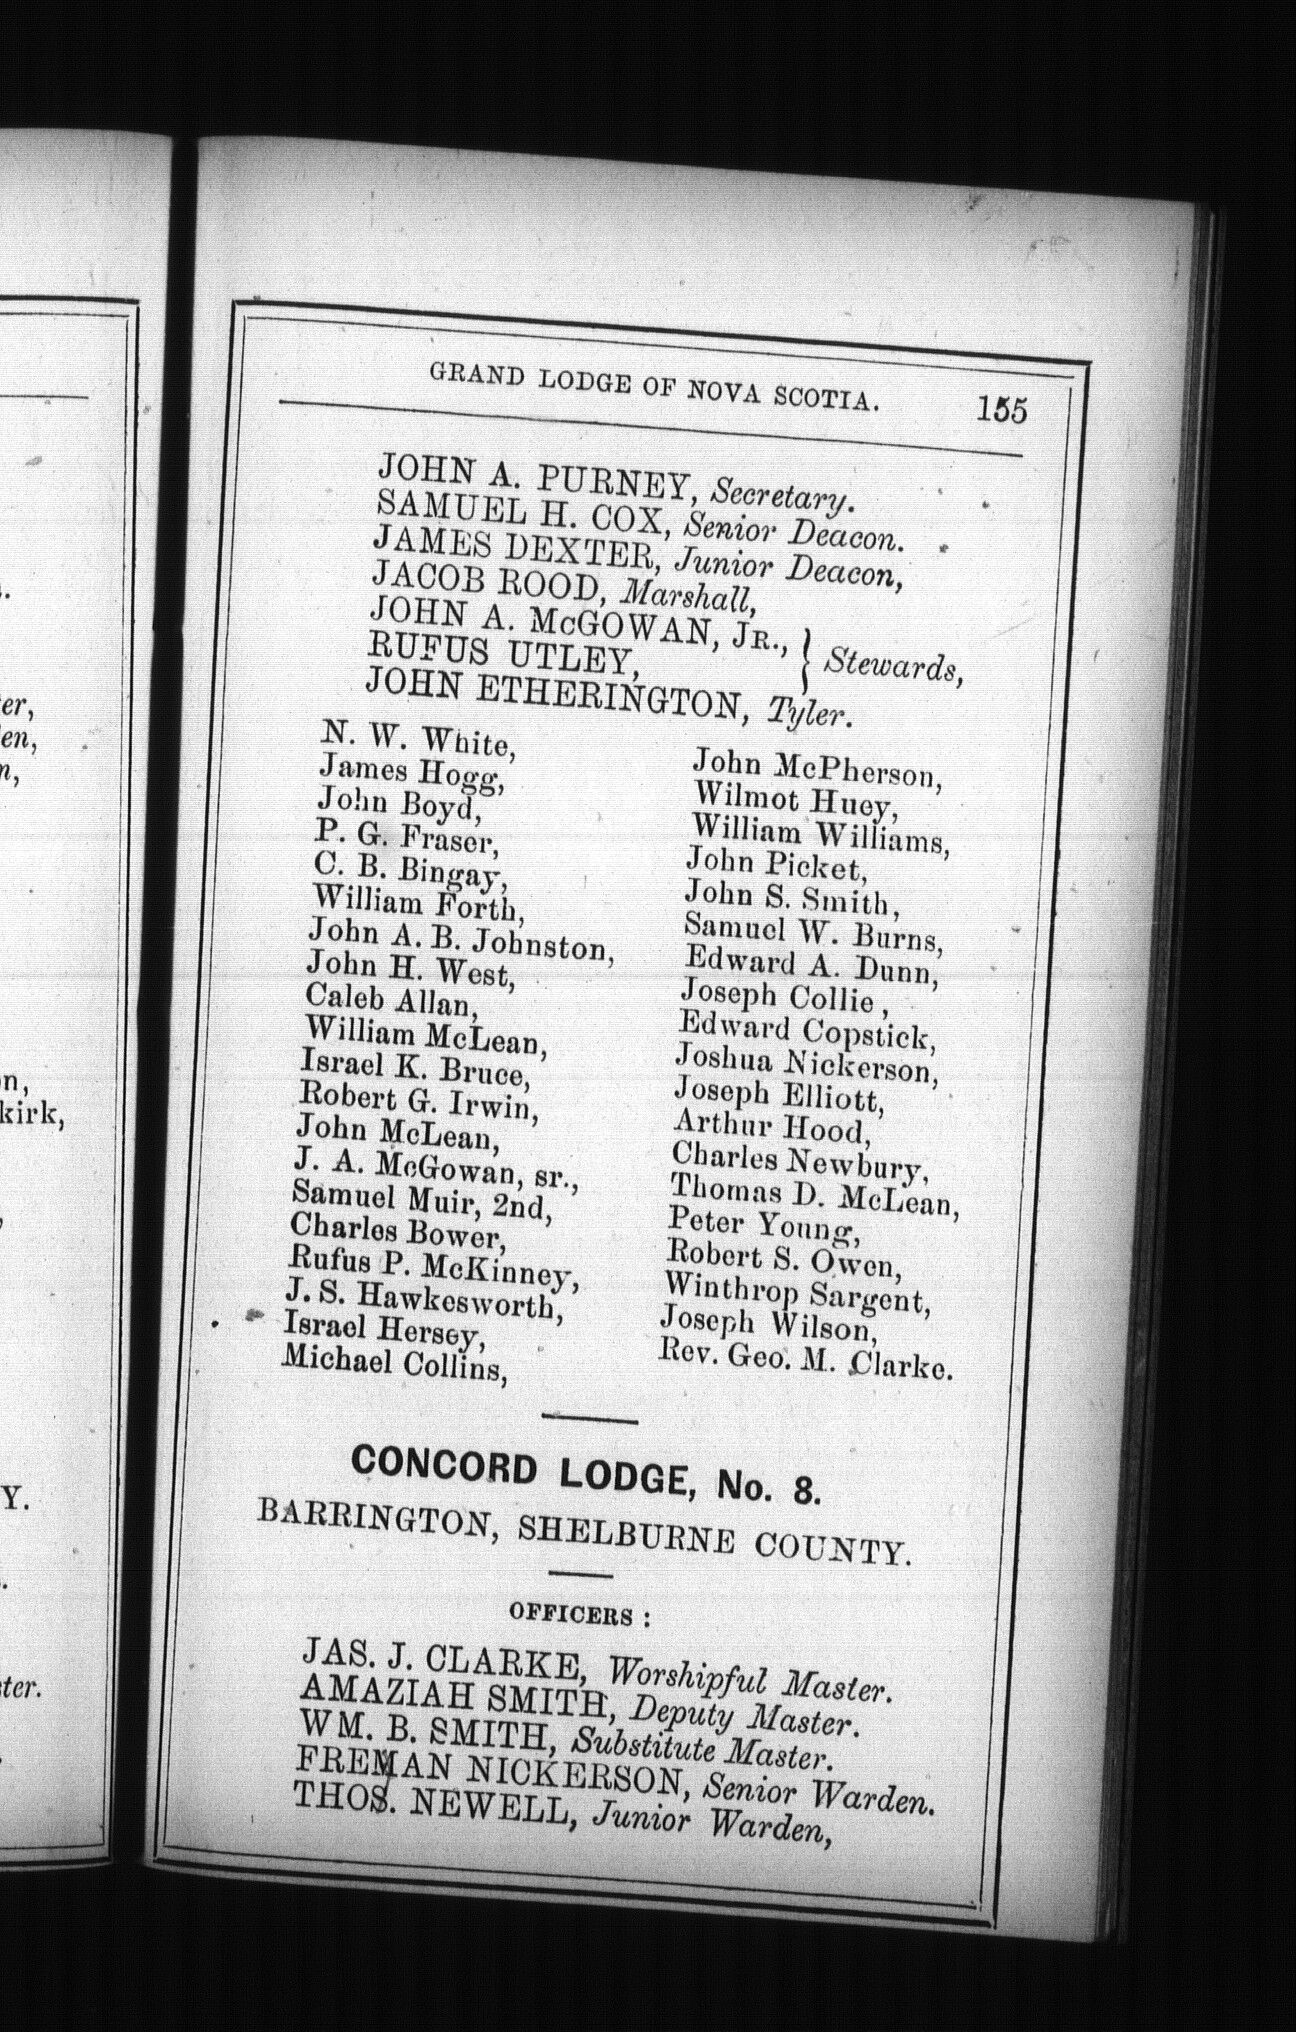 GRAND LODGE OF NOVA SCOTIA. 155
JOHN A. PURNEY, Secretary.
SAMUEL H. COX, Senior Deacon.
JAMES DEXTER, Junior Deacon,
JACOB ROOD, Marshall,
JOHN A. McGOWAN, JR., } Stewards,
RUFUS UTLEY,
JOHN ETHERINGTON, Tyler.
N. W. White,
James Hogg,
John Boyd,
P. G. Fraser,
C. B. Bingay,
William Forth,
John A. B. Johnston,
John H. West,
Caleb Allan,
William McLean,
Israel K. Bruce,
Robert G. Irwin,
John McLean,
J. A. McGowan, sr.,
Samuel Muir, 2nd,
Charles Bower,
Rufus P. McKinney,
J. S. Hawkesworth,
Israel Hersey,
Michael Collins,
John McPherson,
Wilmot Huey,
William Williams,
John Picket,
John S. Smith,
Samuel W. Burns,
Edward A. Dunn,
Joseph Collie,
Edward Copstick,
Joshua Nickerson,
Joseph Elliott,
Arthur Hood,
Charles Newbury,
Thomas D. McLean,
Peter Young,
Robert S. Owen,
Winthrop Sargent,
Joseph Wilson,
Rev. Geo. M. Clarke.
CONCORD LODGE, No. 8.
BARRINGTON, SHELBURNE COUNTY.
OFFICERS:
JAS. J. CLARKE, Worshipful Master.
AMAZIAH SMITH, Deputy Master.
WM. B. SMITH, Substitute Master.
FREMAN NICKERSON, Senior Warden.
THOS. NEWELL, Junior Warden,